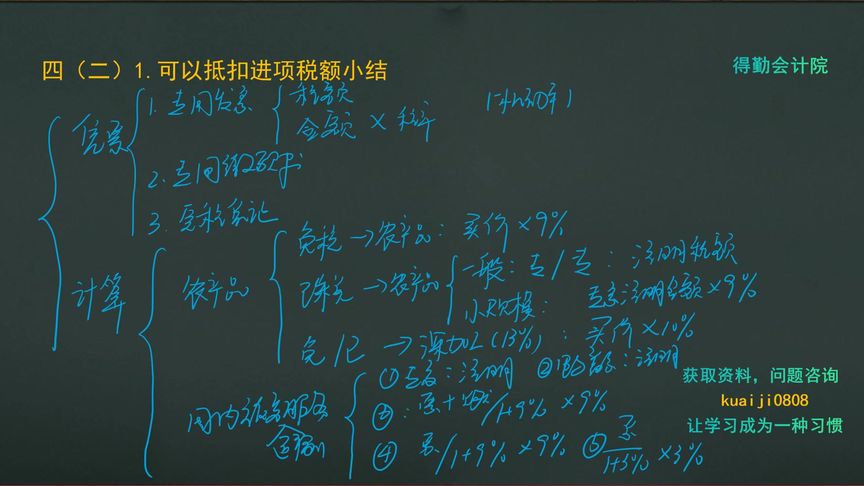 四（二）1.可以抵扣进项税额小结
得勤会计院
凭票
1. 专用发票
税额
金额 × 税率
2. 专用缴款书
3. 完税凭证
计算
农产品
免税 → 农产品：买价×9%
已税 → 农产品
一般：专/专：注明税额
小规模：专票注明金额×9%
免/已 → 深加工(13%)：买价×10%
国内旅客服务
①专票：注明 ②电子普票：注明
③：票+燃/1+9% ×9%
④ 票/1+9% ×9% ⑤ 票/1+3% ×3%
获取资料，问题咨询
kuaiji0808
让学习成为一种习惯